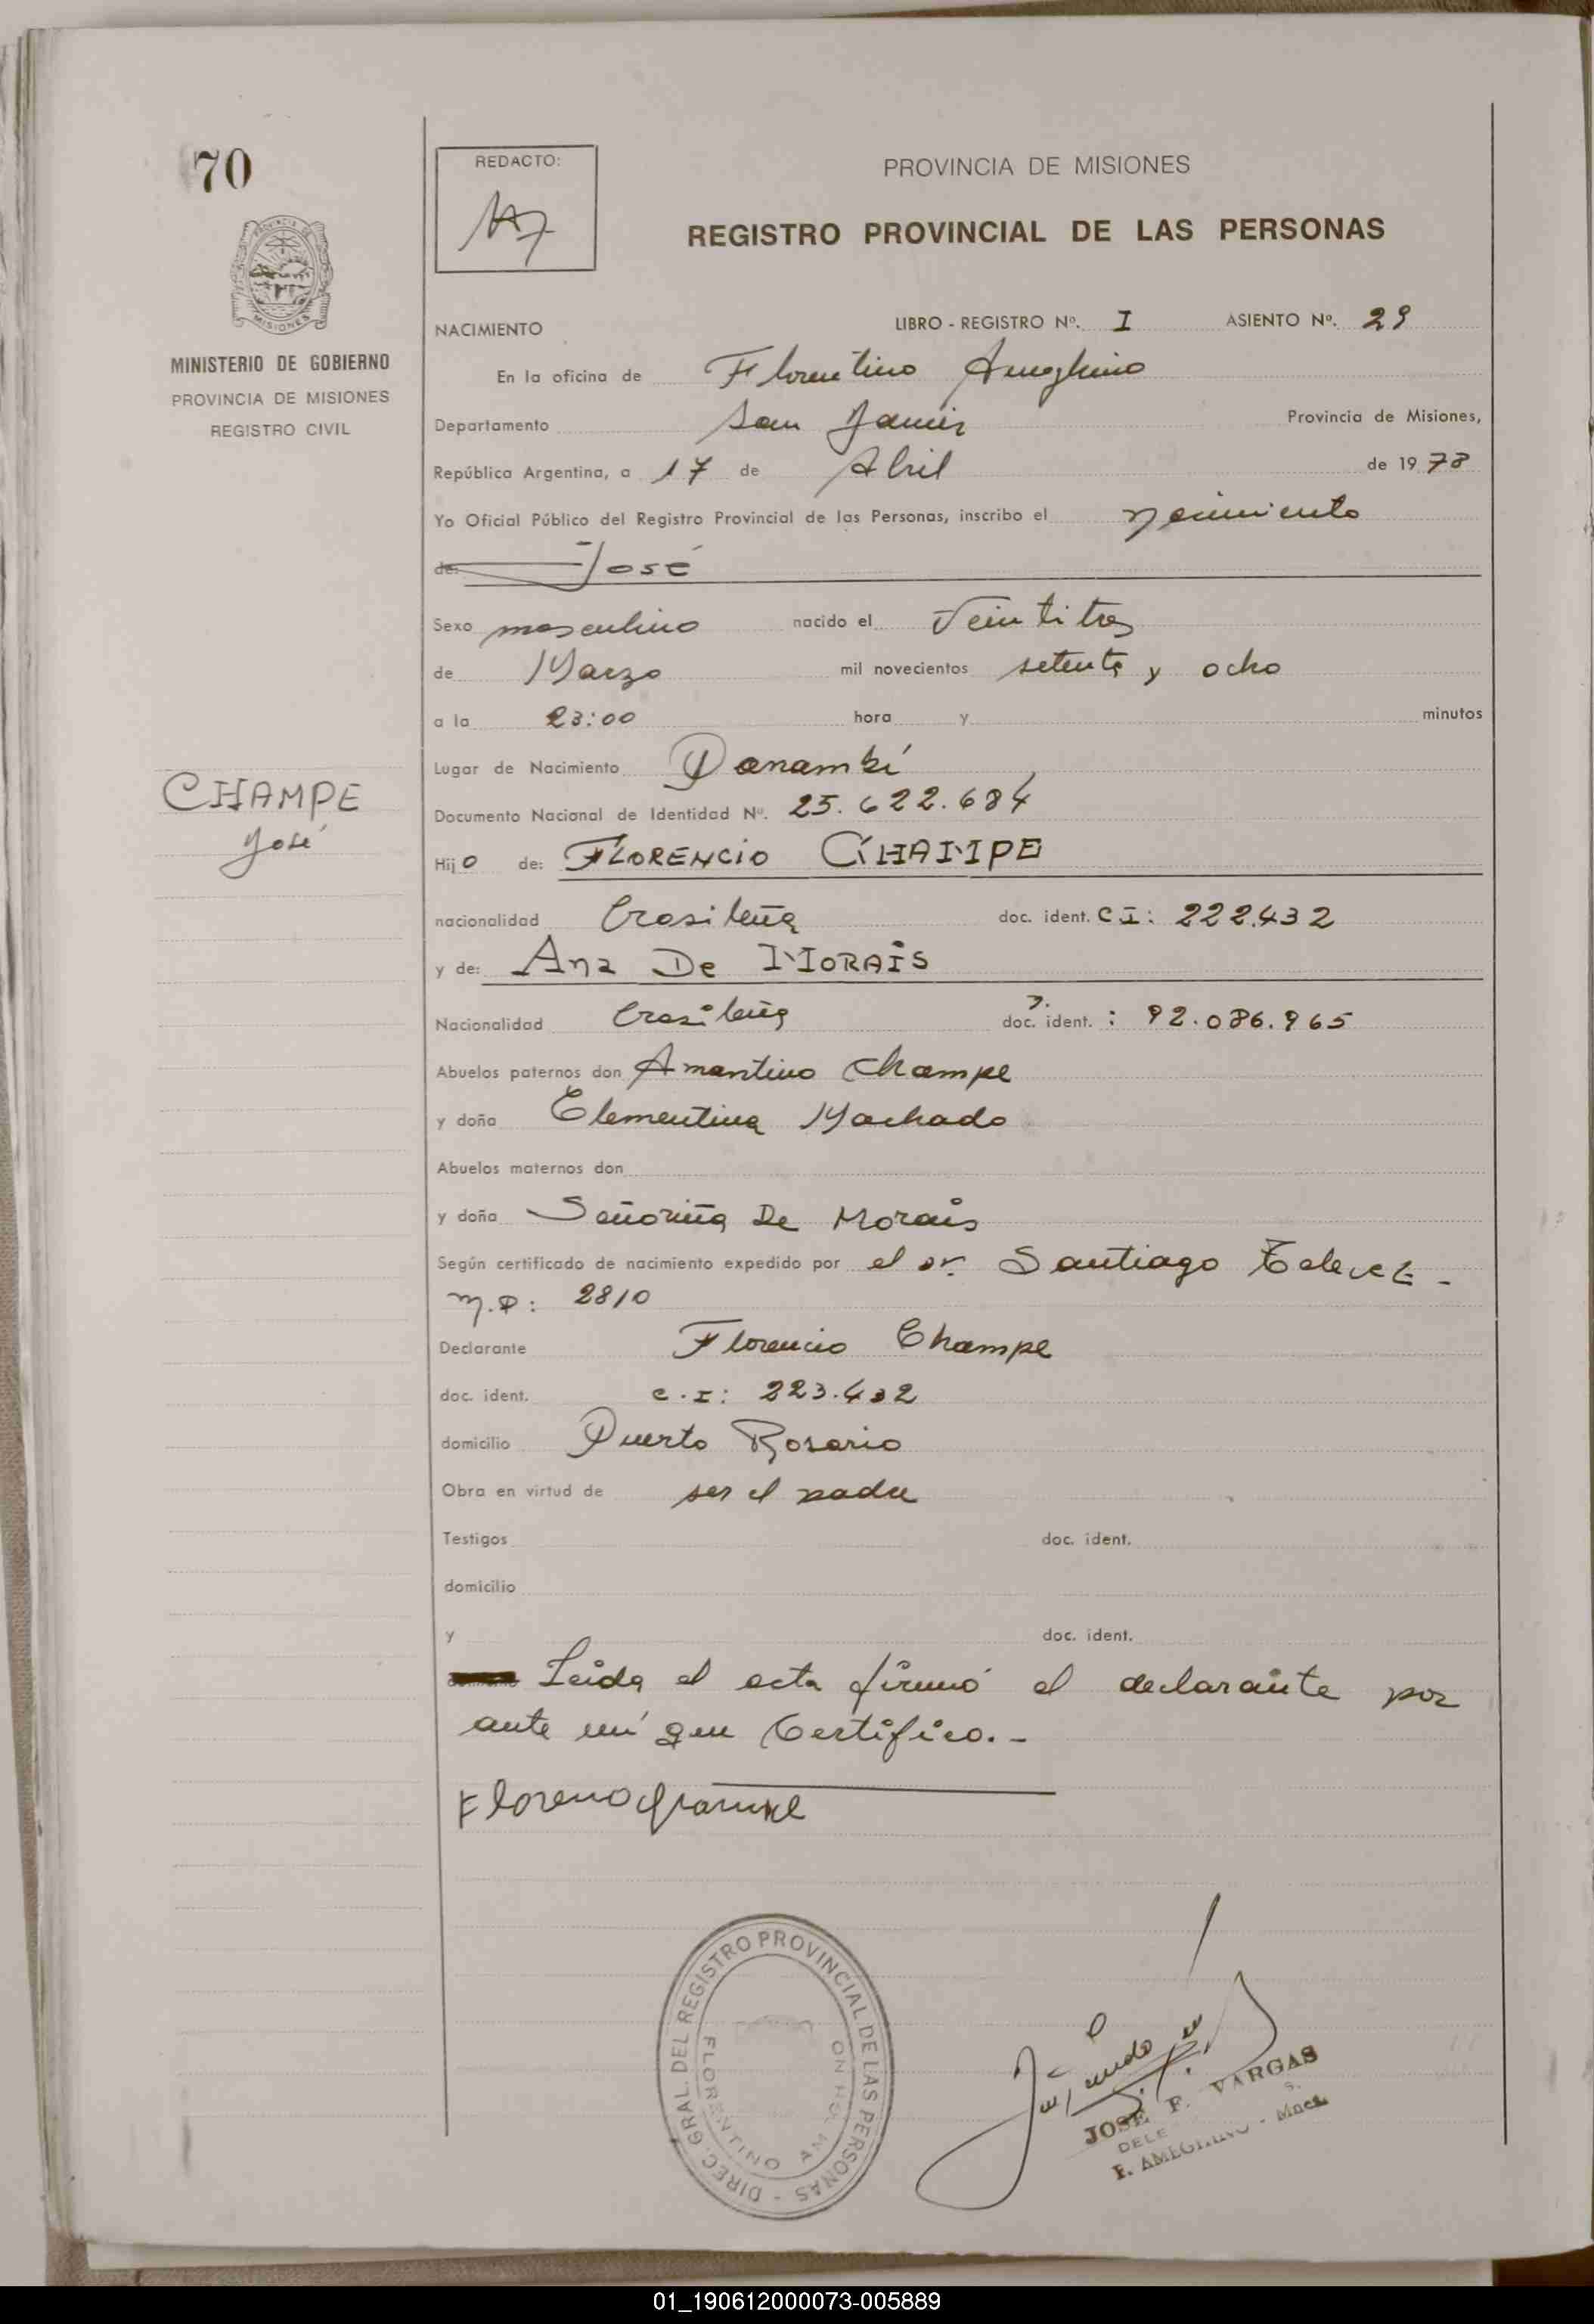 70
REDACTO:
PROVINCIA DE MISIONES
REGISTRO PROVINCIAL DE LAS PERSONAS
PROVINCIA DE MISIONES
MINISTERIO DE GOBIERNO
PROVINCIA DE MISIONES
REGISTRO CIVIL
NACIMIENTO LIBRO - REGISTRO Nº. I ASIENTO Nº. 29
En la oficina de Florentino Ameghino
Departamento San Javier Provincia de Misiones,
República Argentina, a 17 de Abril de 1978
Yo Oficial Público del Registro Provincial de las Personas, inscribo el nacimiento
de: José
Sexo masculino nacido el Veintitres
de Marzo mil novecientos setenta y ocho
a la 23:00 hora y minutos
Lugar de Nacimiento Panambí
CHAMPE
José
Documento Nacional de Identidad Nº. 25.622.684
Hijo de: FLORENCIO CHAMPE
nacionalidad brasileña doc. ident. CI: 222.432
y de: Ana De MORAIS
Nacionalidad brasileña doc. ident. : 92.086.965
Abuelos paternos don Amantino Champe
y doña Clementina Machado
Abuelos maternos don
y doña Señoriña De Morais
Según certificado de nacimiento expedido por el Dr. Santiago
M.P: 2810
Declarante Florencio Champe
doc. ident. C.I: 223.432
domicilio Puerto Rosario
Obra en virtud de ser el padre
Testigos doc. ident.
domicilio
y doc. ident.
Leida el acta firmó el declarante por
ante mí que Certifico.-
DIREC. GRAL. DEL REGISTRO PROVINCIAL DE LAS PERSONAS -
FLORENTINO AMEGHINO
JOSE F. VARGAS
DELE
F. AMEGHINO - Mnes.
01_190612000073-005889